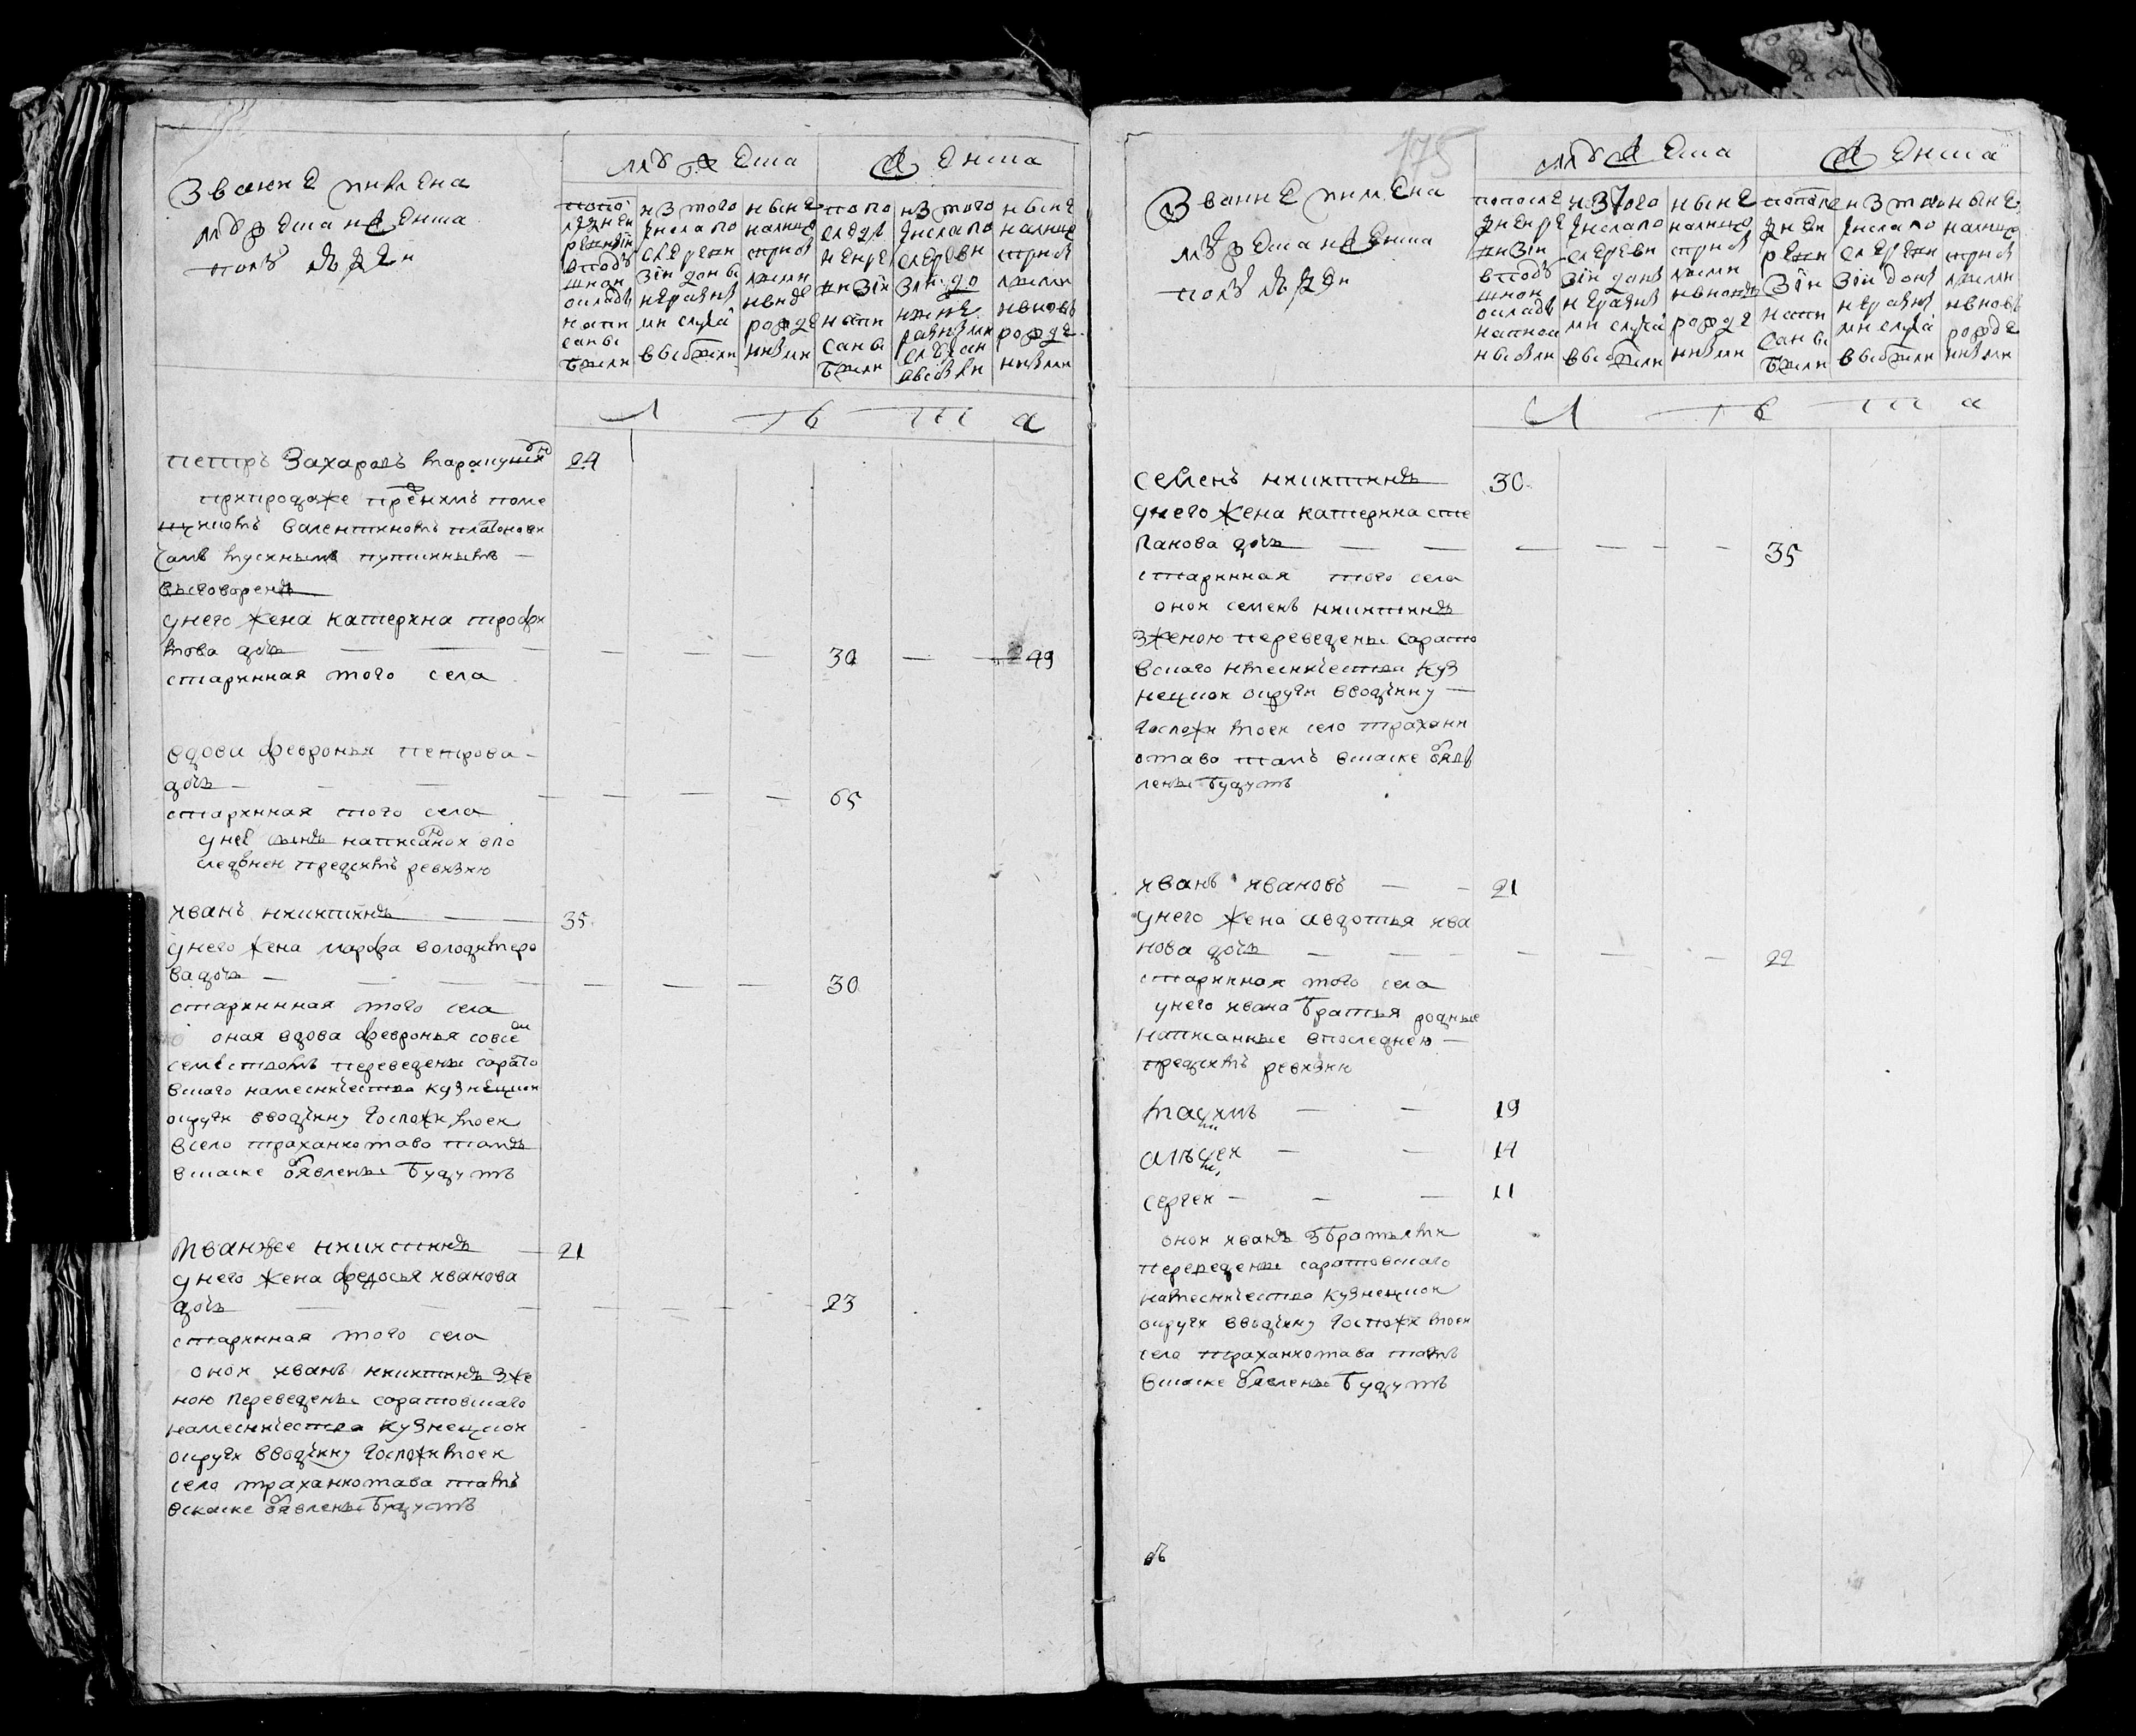 Звание и имена
мужеска и женска
полу людей
мужеска
женска
по по
следней
ревизии
в подуш
ной
оклад
напи
саны
были
из того
числа по
сле реви
зии до ны
не разны
ми случа
выбыли
ныне
налицо
с при
былыми
и внов
рожде
ными
по по
следн
ней ре
визии
напи
саны
были
из того
числа по
сле реви
зии до
ныне
разными
случаи
выбыли
ныне
налицо
с при
былыми
и вновь
рожде
ными
Л Ѣ Т а
петръ Захаровъ 24
при продаже прежнимъ поме
щикомъ валентиномъ платонови
чамъ мусинымъ пушкинымъ —
выговоренъ
у него жена катерина трофи
мова дочь — — — — — — 30 — — 49
старинная того села
вдова февронья петрова —
дочь — — — — — — 65
старинная того села
у неё сынъ написаной впо
следнеи предсимъ ревизию
иванъ никитинъ — 35
у него жена марфа володимеро
ва дочь — — — — — — 30
старинная того села
оная вдова февронья совсе
семействомъ переведены сарато
вскаго наместничества кузнецкои
округи ввотчину госпожи моеи
всело траханиотаво тамъ
всказке объявлены будутъ
Иванже никитинъ — 21
у него жена федосья иванова
дочь — — — — — — 23
старинная того села
оной иванъ никитинъ зже
ною переведены саратовскаго
наместничества кузнецкои
округи ввотчину госпожи моеи
село траханиотава тамъ
всказке объявлены будутъ
175
Звание и имена
мужеска и женска
полу людей
мужеска
женска
по после
дней ре
визи
в подуш
ной
окладъ
написа
ны были
из того
числа по
сле реви
зии до ны
не разны
ми случа
выбыли
ныне
налицо
с при
былыми
и вновь
рожде
ными
по после
дней
реви
зии
напи
саны
были
из того
числа по
сле реви
зии до ны
не разны
ми случа
выбыли
ныне
налицо
с при
былыми
и вновь
рожде
ными
Л Ѣ Т а
семенъ никитинъ 30
у него жена катерина сте
панова дочь — — — — — — 35
старинная того села
оной семенъ никитинъ
зженою переведены сарато
вскаго нместничества куз
нецкои округи ввотчину —
госпожи моеи село трахани
отаво тамъ всказке объяв
лены будутъ
иванъ ивановъ — — 21
у него жена авдотья ива
нова дочь — — — — — — 22
старинная того села
у него ивана братья родные
написанные впоследнею —
предсимъ ревизии
максимъ — — 19
алексеи — — 14
сергеи — — — 11
оной иванъ збратьями
переведены саратовскаго
наместничества кузнецкои
округи ввотчину госпожи моеи
село траханиотава тамъ
всказке объявлены будутъ